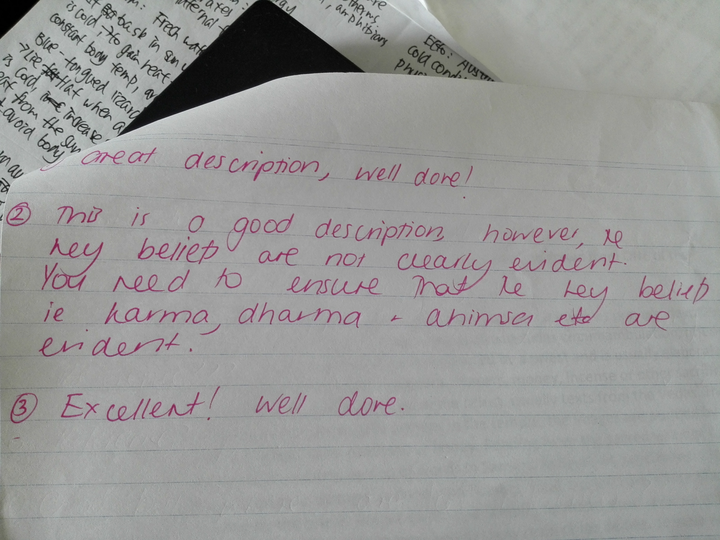 : Fresh wat
bask in sun
is cold → to gain heat
constant body temp, a
Blue-tongued lizard
flat when a
is cold, increase
from the sun
avoid body
amphibians
Ecto:
cold condi
great description, well done!
② This is a good description, however, the
key beliefs are not clearly evident.
You need to ensure that the key beliefs
ie karma, dharma + ahimsa etc are
evident.
③ Excellent! Well done.